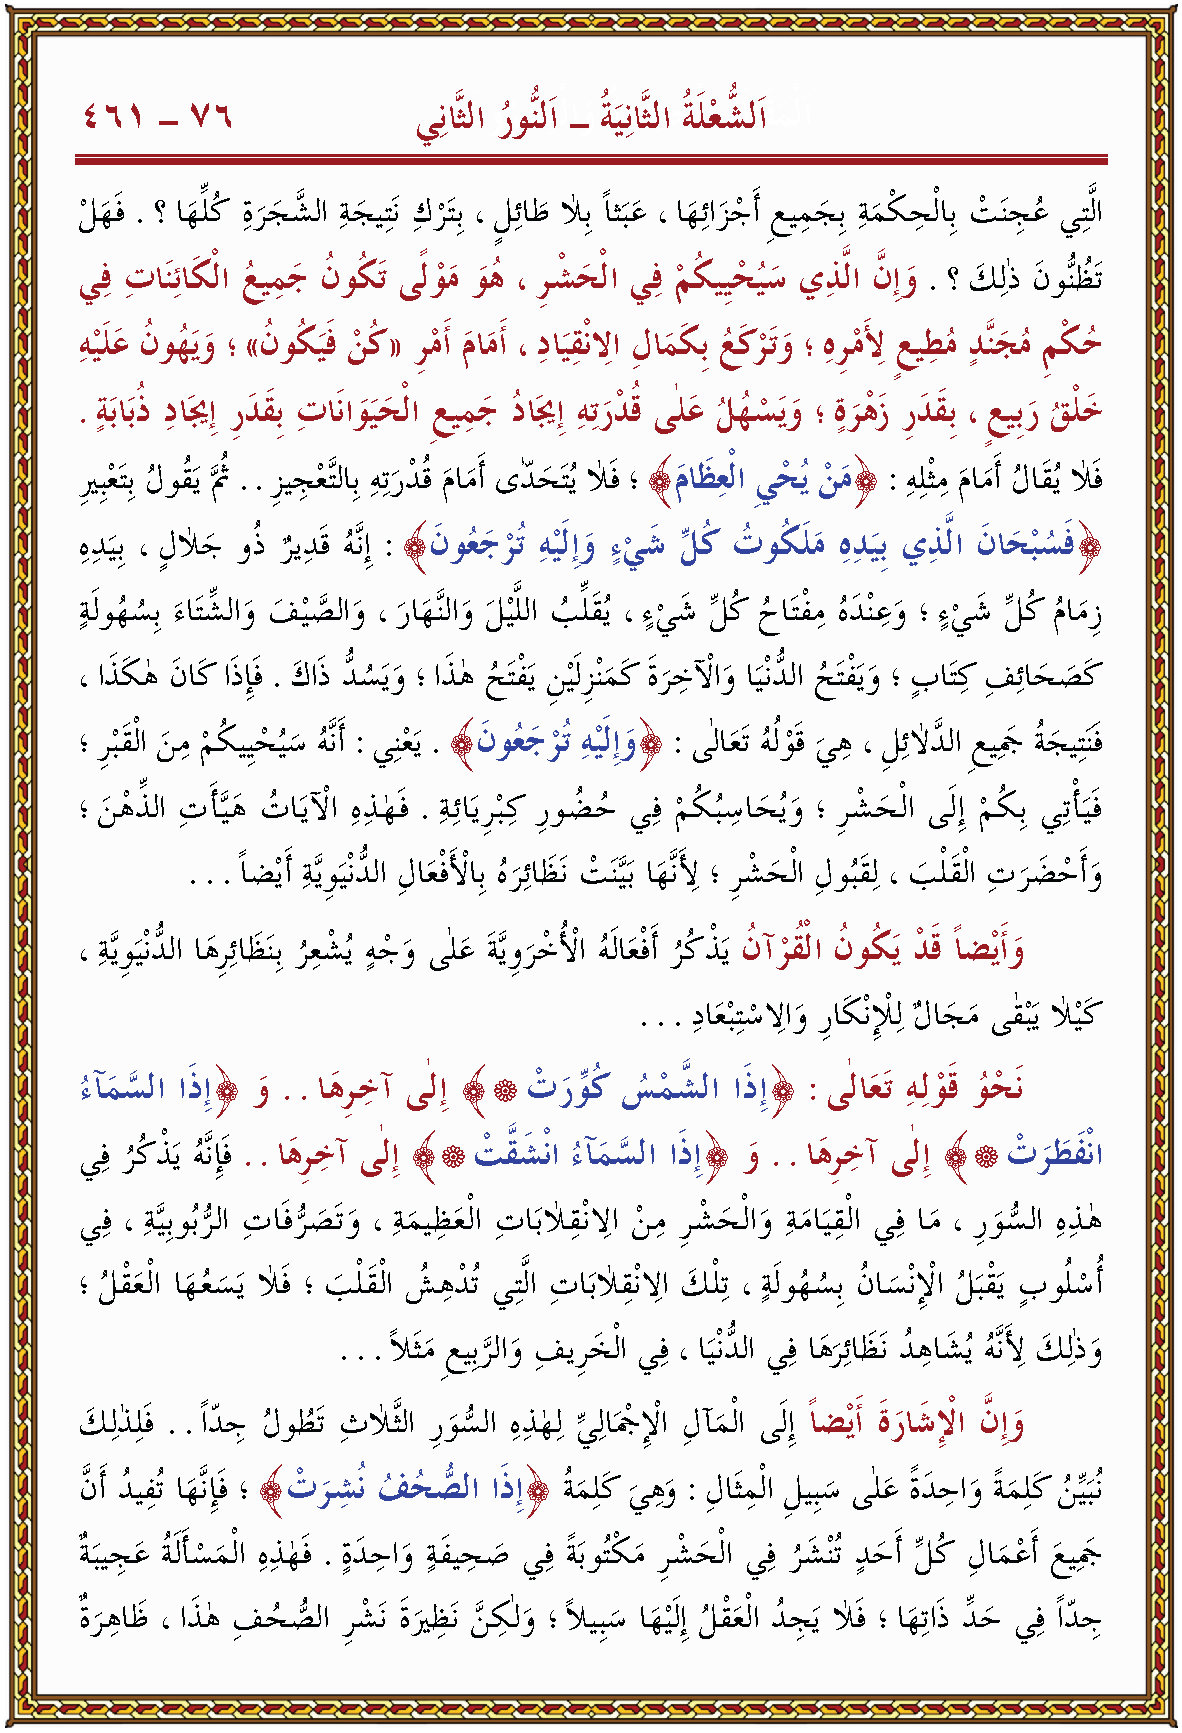 اَلشُّعْلَةُ الثَّانِيَةُ ـ اَلنُّورُ الثَّانِي ٧٦ ـ ٤٦١
الَّتِي عُجِنَتْ بِالْحِكْمَةِ بِجَمِيعِ أَجْزَائِهَا ، عَبَثاً بِلَا طَائِلٍ ، بِتَرْكِ نَتِيجَةِ الشَّجَرَةِ كُلِّهَا ؟ . فَهَلْ
تَظُنُّونَ ذٰلِكَ ؟ . وَإِنَّ الَّذِي سَيُحْيِيكُمْ فِي الْحَشْرِ ، هُوَ مَوْلًى تَكُونُ جَمِيعُ الْكَائِنَاتِ فِي
حُكْمِ مُجَنَّدٍ مُطِيعٍ لِأَمْرِهِ ؛ وَتَرْكَعُ بِكَمَالِ الِانْقِيَادِ ، أَمَامَ أَمْرِ «كُنْ فَيَكُونُ» ؛ وَيَهُونُ عَلَيْهِ
خَلْقُ رَبِيعٍ ، بِقَدَرِ زَهْرَةٍ ؛ وَيَسْهُلُ عَلٰى قُدْرَتِهِ إِيجَادُ جَمِيعِ الْحَيَوَانَاتِ بِقَدَرِ إِيجَادِ ذُبَابَةٍ .
فَلَا يُقَالُ أَمَامَ مِثْلِهِ : ﴿مَنْ يُحْيِ الْعِظَامَ﴾ ؛ فَلَا يُتَحَدّٰى أَمَامَ قُدْرَتِهِ بِالتَّعْجِيزِ . . ثُمَّ يَقُولُ بِتَعْبِيرِ
﴿فَسُبْحَانَ الَّذِي بِيَدِهِ مَلَكُوتُ كُلِّ شَيْءٍ وَإِلَيْهِ تُرْجَعُونَ﴾ : إِنَّهُ قَدِيرٌ ذُو جَلَالٍ ، بِيَدِهِ
زِمَامُ كُلِّ شَيْءٍ ؛ وَعِنْدَهُ مِفْتَاحُ كُلِّ شَيْءٍ ، يُقَلِّبُ اللَّيْلَ وَالنَّهَارَ ، وَالصَّيْفَ وَالشِّتَاءَ بِسُهُولَةٍ
كَصَحَائِفِ كِتَابٍ ؛ وَيَفْتَحُ الدُّنْيَا وَالْآخِرَةَ كَمَنْزِلَيْنِ يَفْتَحُ هٰذَا ؛ وَيَسُدُّ ذَاكَ . فَإِذَا كَانَ هٰكَذَا ،
فَنَتِيجَةُ جَمِيعِ الدَّلَائِلِ ، هِيَ قَوْلُهُ تَعَالٰى : ﴿وَإِلَيْهِ تُرْجَعُونَ﴾ . يَعْنِي : أَنَّهُ سَيُحْيِيكُمْ مِنَ الْقَبْرِ ؛
فَيَأْتِي بِكُمْ إِلَى الْحَشْرِ ؛ وَيُحَاسِبُكُمْ فِي حُضُورِ كِبْرِيَائِهِ . فَهٰذِهِ الْآيَاتُ هَيَّأَتِ الذِّهْنَ ؛
وَأَحْضَرَتِ الْقَلْبَ ، لِقَبُولِ الْحَشْرِ ؛ لِأَنَّهَا بَيَّنَتْ نَظَائِرَهُ بِالْأَفْعَالِ الدُّنْيَوِيَّةِ أَيْضاً . . .
وَأَيْضاً قَدْ يَكُونُ الْقُرْآنُ يَذْكُرُ أَفْعَالَهُ الْأُخْرَوِيَّةَ عَلٰى وَجْهٍ يُشْعِرُ بِنَظَائِرِهَا الدُّنْيَوِيَّةِ ،
كَيْلَا يَبْقٰى مَجَالٌ لِلْإِنْكَارِ وَالِاسْتِبْعَادِ . . .
نَحْوُ قَوْلِهِ تَعَالٰى : ﴿إِذَا الشَّمْسُ كُوِّرَتْ ۞﴾ إِلٰى آخِرِهَا . . وَ ﴿إِذَا السَّمَآءُ
انْفَطَرَتْ ۞﴾ إِلٰى آخِرِهَا . . وَ ﴿إِذَا السَّمَآءُ انْشَقَّتْ ۞﴾ إِلٰى آخِرِهَا . . فَإِنَّهُ يَذْكُرُ فِي
هٰذِهِ السُّوَرِ ، مَا فِي الْقِيَامَةِ وَالْحَشْرِ مِنْ الِانْقِلَابَاتِ الْعَظِيمَةِ ، وَتَصَرُّفَاتِ الرُّبُوبِيَّةِ ، فِي
أُسْلُوبٍ يَقْبَلُ الْإِنْسَانُ بِسُهُولَةٍ ، تِلْكَ الِانْقِلَابَاتِ الَّتِي تُدْهِشُ الْقَلْبَ ؛ فَلَا يَسَعُهَا الْعَقْلُ ؛
وَذٰلِكَ لِأَنَّهُ يُشَاهِدُ نَظَائِرَهَا فِي الدُّنْيَا ، فِي الْخَرِيفِ وَالرَّبِيعِ مَثَلاً . . .
وَإِنَّ الْإِشَارَةَ أَيْضاً إِلَى الْمَآلِ الْإِجْمَالِيِّ لِهٰذِهِ السُّوَرِ الثَّلَاثِ تَطُولُ جِدّاً . . فَلِذٰلِكَ
نُبَيِّنُ كَلِمَةً وَاحِدَةً عَلٰى سَبِيلِ الْمِثَالِ : وَهِيَ كَلِمَةُ ﴿إِذَا الصُّحُفُ نُشِرَتْ﴾ ؛ فَإِنَّهَا تُفِيدُ أَنَّ
جَمِيعَ أَعْمَالِ كُلِّ أَحَدٍ تُنْشَرُ فِي الْحَشْرِ مَكْتُوبَةً فِي صَحِيفَةٍ وَاحِدَةٍ . فَهٰذِهِ الْمَسْأَلَةُ عَجِيبَةٌ
جِدّاً فِي حَدِّ ذَاتِهَا ؛ فَلَا يَجِدُ الْعَقْلُ إِلَيْهَا سَبِيلاً ؛ وَلٰكِنَّ نَظِيرَةَ نَشْرِ الصُّحُفِ هٰذَا ، ظَاهِرَةٌ